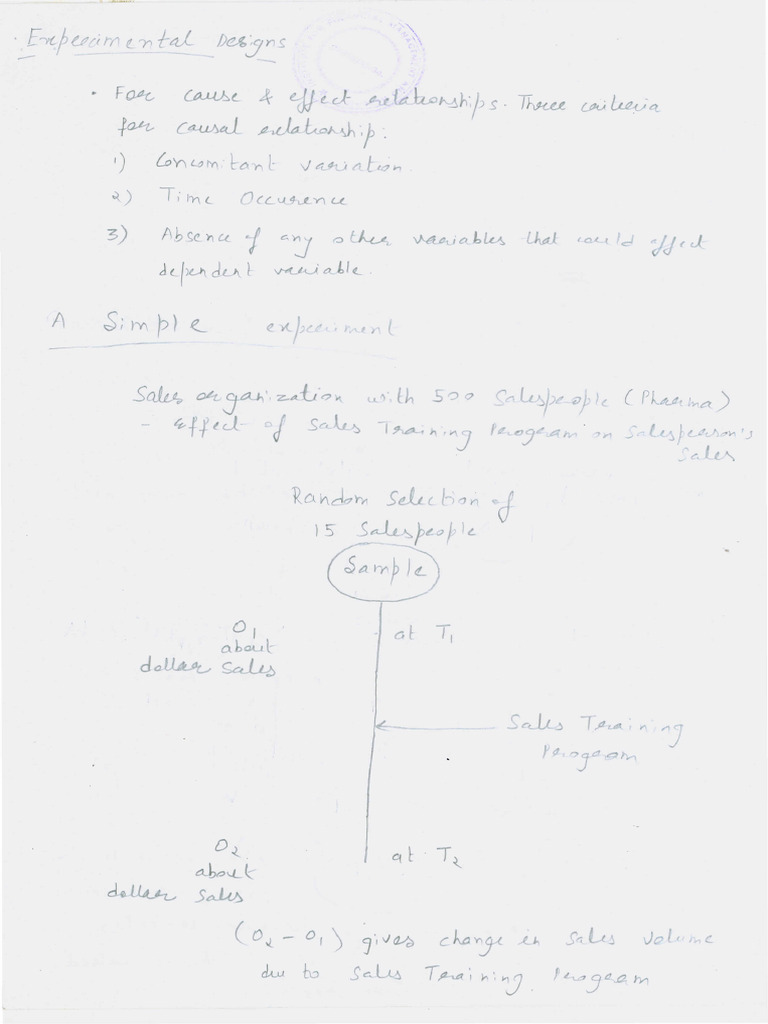 Experimental Designs
• For cause & effect relationships. Three criteria
for causal relationship:
1) Concomitant variation.
2) Time Occurence
3) Absence of any other variables that could affect
dependent variable.
A Simple experiment
Sales organization with 500 Salespeople (Pharma)
- Effect of Sales Training Program on Salesperson's
Sales
Random Selection of
15 Salespeople
Sample
O1 at T1
about
dollar sales
Sales Training
Program
O2 at T2
about
dollar sales
(O2 - O1) gives change in sales volume
due to Sales Training Program